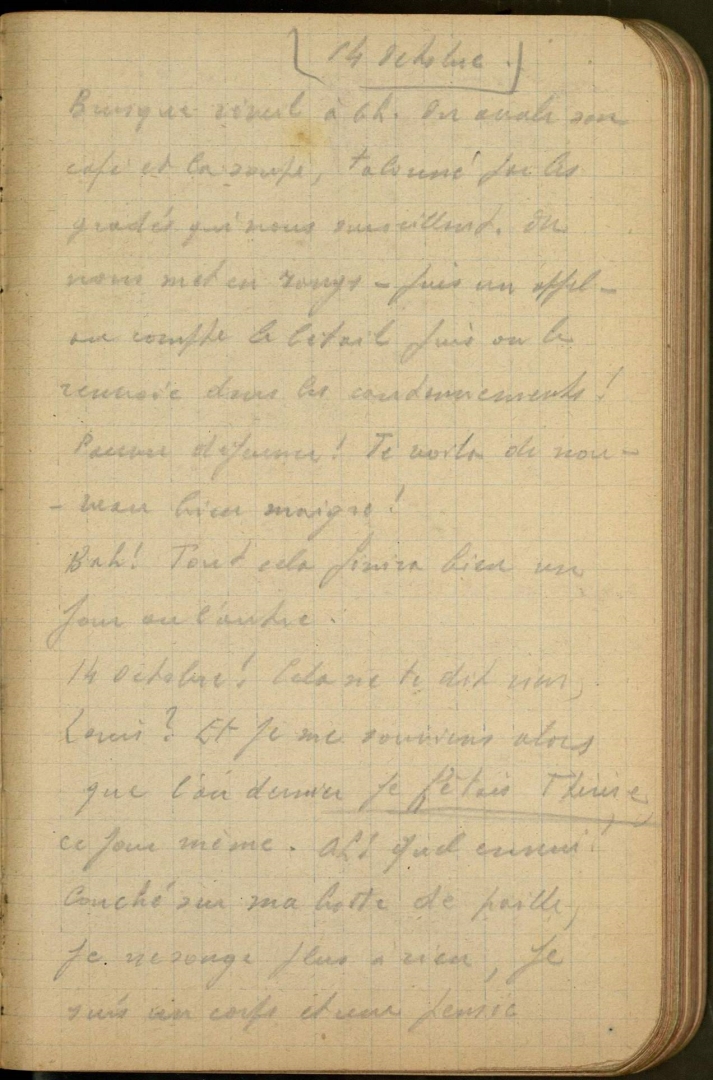 14 Octobre.
Brusque réveil à 6h. On avale son
café et la soupe, talonné par les
gradés qui nous surveillent. On
nous met en rangs - puis un appel -
on compte le bétail puis on le
renvoie dans les cantonnements !
Pauvre déjeuner ! Te voilà de nou-
- veau bien maigre !
Bah ! Tout cela finira bien un
jour ou l'autre.
14 Octobre ! Cela ne te dit rien,
Louis ? Et je me souviens alors
que l'an dernier je fêtais Thérèse,
ce jour même. Ah ! quel ennui !
Couché sur ma botte de paille,
je ne songe plus à rien, je
suis un corps et une pensée